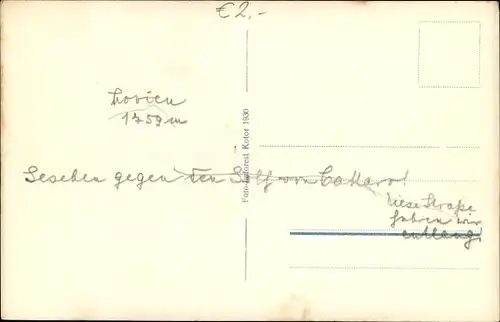 €2,-
Lovćen
1759 m
Foto-Laforest Kotor 1930
Gesehen gegen den Golf von Cattaro!
diese Straße
fahren wir
entlang